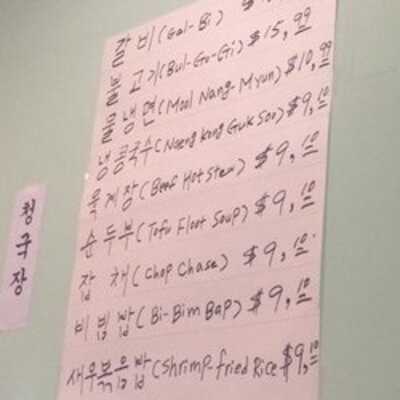 갈비(Gal-Bi) $
불고기(Bul-Go-Gi) $15.99
물냉면(Mool Nang-Myun) $10.99
냉콩국수(Naeng Kong Guk Soo) $9.10
육계장(Beef Hot Stew) $9.10
순두부(Tofu Floot Soup) $9.10
잡채(Chop Chase) $9.10
비빔밥(Bi-Bim Bap) $9.10
새우볶음밥(Shrimp-fried Rice $9.10
청국장